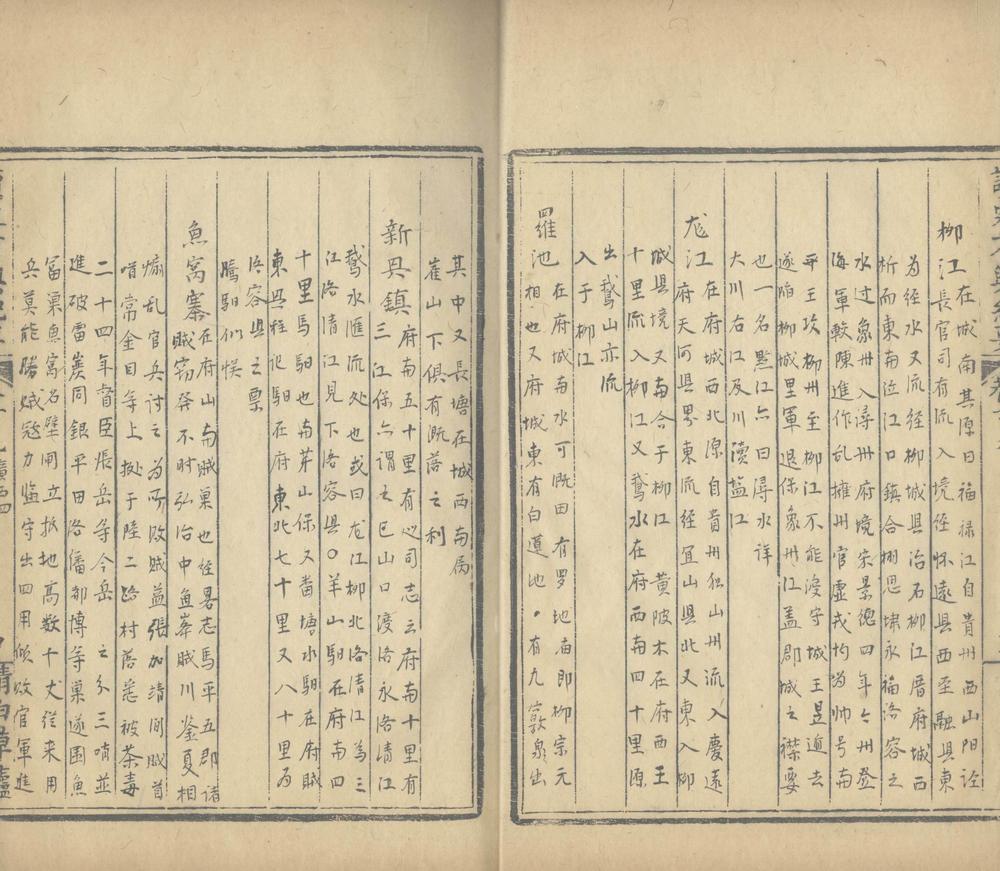 柳江在城南其原曰福禄江自貴州西山阳
為經水又流经柳城县治石柳江厝府城西
析而東南迳江口鎮合栅思埭永福洛容之
水过象州入㝷州府境宋景德四年宜州登
海軍軟陳進作乱擁州官盧成均為帅号南
平王攻柳州至柳江不能渡守城王昱遁去
遂陷柳城里軍退保象州江盖郡城之襟要
也一名黔江亦曰潯水详
大川右江及川瀆盐江
龙江在府城西北源自貴州独山州流入慶远
府天河县界東流经宜山县北又東入柳
城县境又南合于柳江 黄陂水在府西王
十里流入柳江又鹅水在府西南四十里原
出鹅山亦流
入于柳江
羅池在府城南水可溉田有罗地庙即柳宗元
相也又府城東有白莲池·有九敦泉出
其中又長塘在城西南属
崔山下俱有溉落之利
新具鎮府南五十里有巡司志云府南十里有
三江保亦謂之巴山口渡洛永洛靖江
鹅水匯流处也或曰龙江柳北洛清江為三
江洛清江見下洛容县○羊山駉在府南四
十里馬駉也又芽山保又畨塘水駉在府城
東县雒㐲駉在府東北七十里又八十里为
洛容县之票
騰駉们悞
魚窝寨在府山南賊巢也经畧志馬平五郡诸
賊窃發不时弘治中鱼峯賊川鉴夏相
煽乱官兵讨之為所敗賊益張加靖间賊首
㗂常金目等上掀于陸二路村落悉被荼毒
二十四年督臣張岳等令岳之分三哨並
進破雷炭同銀平田洛僠都博等巢遂围魚
窝巢魚窝名壁閘立拆地高数十丈従来用
兵莫能勝賊悉力临守出四用倾敗官軍進